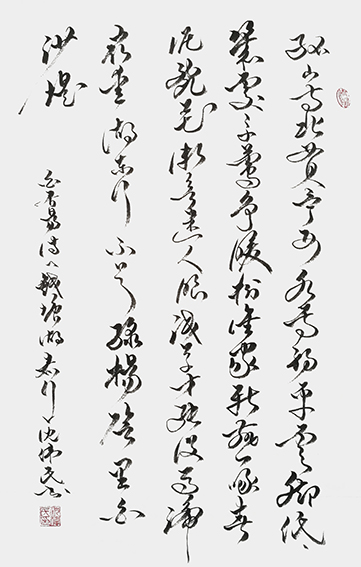 孤山寺北贾亭西水面初平云脚低
幾處早莺争暖樹谁家新燕啄春
泥亂花渐欲迷人眼浅草才能没马蹄
最爱湖东行不足绿楊陰里白
沙堤
白居易诗钱塘湖春行沈伟民书